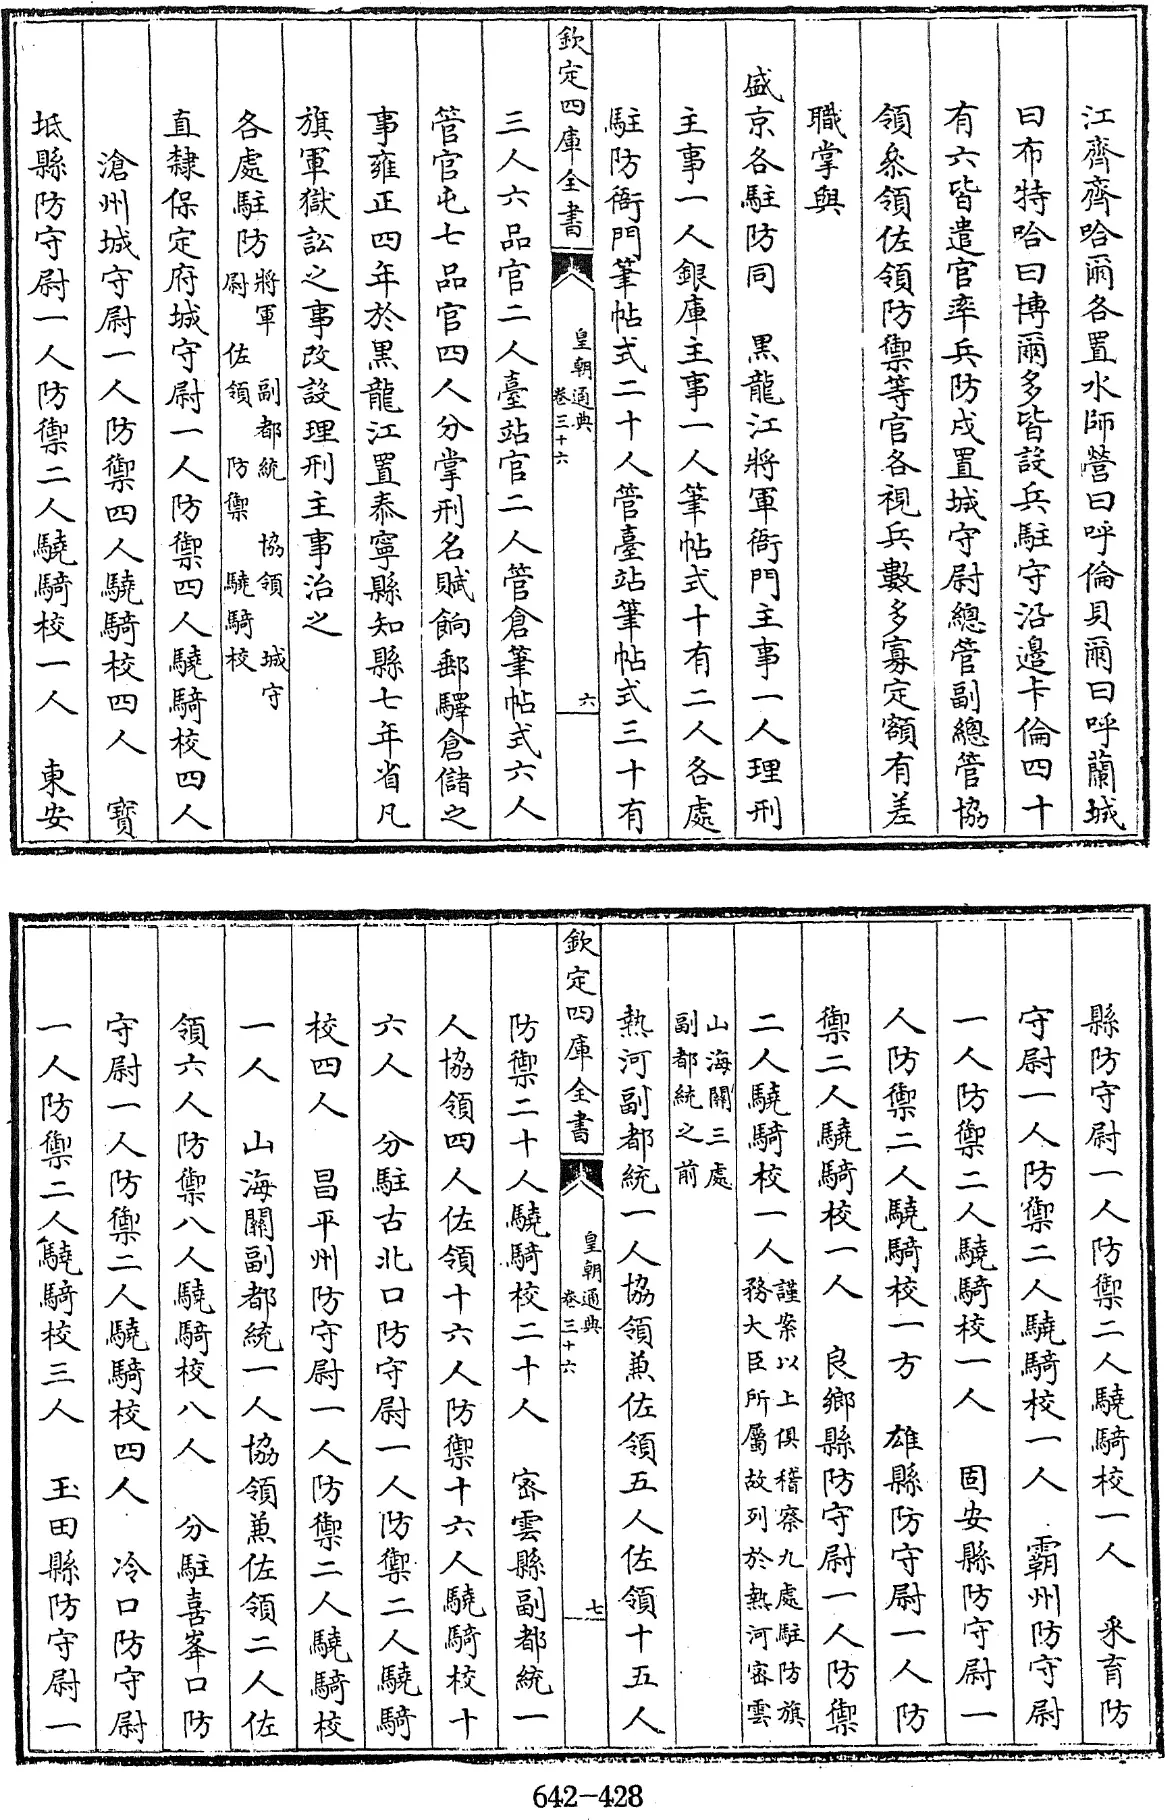 江齊齊哈爾各置水師營曰呼倫貝爾曰呼蘭城
曰布特哈曰博爾多皆設兵駐守沿邊卡倫四十
有六皆遣官率兵防戍置城守尉總管副總管協
領叅領佐領防禦等官各視兵數多寡定額有差
職掌與
盛京各駐防同 黒龍江將軍衙門主事一人理刑
主事一人銀庫主事一人筆帖式十有二人各處
駐防衙門筆帖式二十人管臺站筆帖式三十有
欽定四庫全書
皇朝通典
卷三十六
六
三人六品官二人臺站官二人管倉筆帖式六人
管官屯七品官四人分掌刑名賦餉郵驛倉儲之
事雍正四年於黒龍江置泰寧縣知縣七年省凡
旗軍獄訟之事改設理刑主事治之
各處駐防
將軍 副都統 協領 城守
尉 佐領 防禦 驍騎校
直隸保定府城守尉一人防禦四人驍騎校四人
滄州城守尉一人防禦四人驍騎校四人 寶
坻縣防守尉一人防禦二人驍騎校一人 東安
縣防守尉一人防禦二人驍騎校一人 采育防
守尉一人防禦二人驍騎校一人 霸州防守尉
一人防禦二人驍騎校一人 固安縣防守尉一
人防禦二人驍騎校一方 雄縣防守尉一人防
禦二人驍騎校一人 良鄉縣防守尉一人防禦
二人驍騎校一人
謹案以上俱稽察九處駐防旗
務大臣所屬故列於熱河密雲
山海關三處
副都統之前
熱河副都統一人協領兼佐領五人佐領十五人
欽定四庫全書
皇朝通典
卷三十六
七
防禦二十人驍騎校二十人 密雲縣副都統一
人協領四人佐領十六人防禦十六人驍騎校十
六人 分駐古北口防守尉一人防禦二人驍騎
校四人 昌平州防守尉一人防禦二人驍騎校
一人 山海關副都統一人協領兼佐領二人佐
領六人防禦八人驍騎校八人 分駐喜峯口防
守尉一人防禦二人驍騎校四人 冷口防守尉
一人防禦二人驍騎校三人 玉田縣防守尉一
642-428